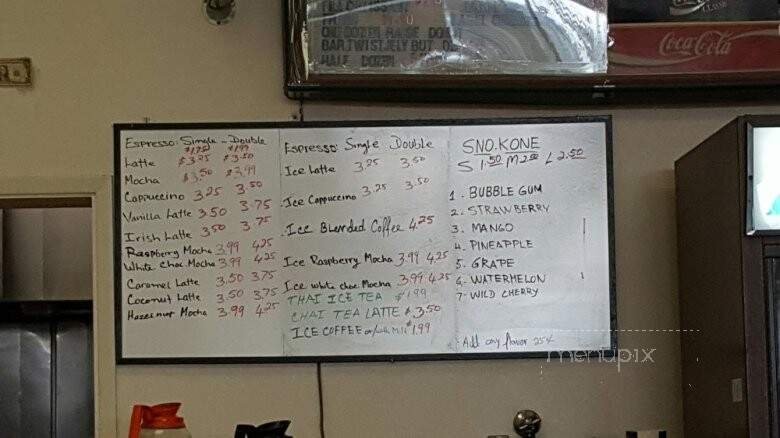 ONE DOZEN RAISE DO
HALF DOZEN
Coca-Cola
ESPRESSO: Single - Double
$1.75 $1.99
Latte $3.25 $3.50
Mocha $3.50 $3.99
Cappuccino 3.25 3.50
Vanilla Latte 3.50 3.75
Irish Latte 3.50 3.75
Raspberry Mocha 3.99 4.25
White Choc. Mocha 3.99 4.25
Caramel Latte 3.50 3.75
Coconut Latte 3.50 3.75
Hazelnut Mocha 3.99 4.25
ESPRESSO: Single Double
Ice Latte 3.25 3.50
Ice Cappuccino 3.25 3.50
Ice Blended Coffee 4.25
Ice Raspberry Mocha 3.99 4.25
Ice white choc. Mocha 3.99 4.25
THAI ICE TEA $1.99
CHAI TEA LATTE $3.50
ICE COFFEE Milk $1.99
SNO.KONE
S 1.50 M 2.00 L 2.50
1. BUBBLE GUM
2. STRAWBERRY
3. MANGO
4. PINEAPPLE
5. GRAPE
6. WATERMELON
7. WILD CHERRY
Add any flavor 25¢
menupix